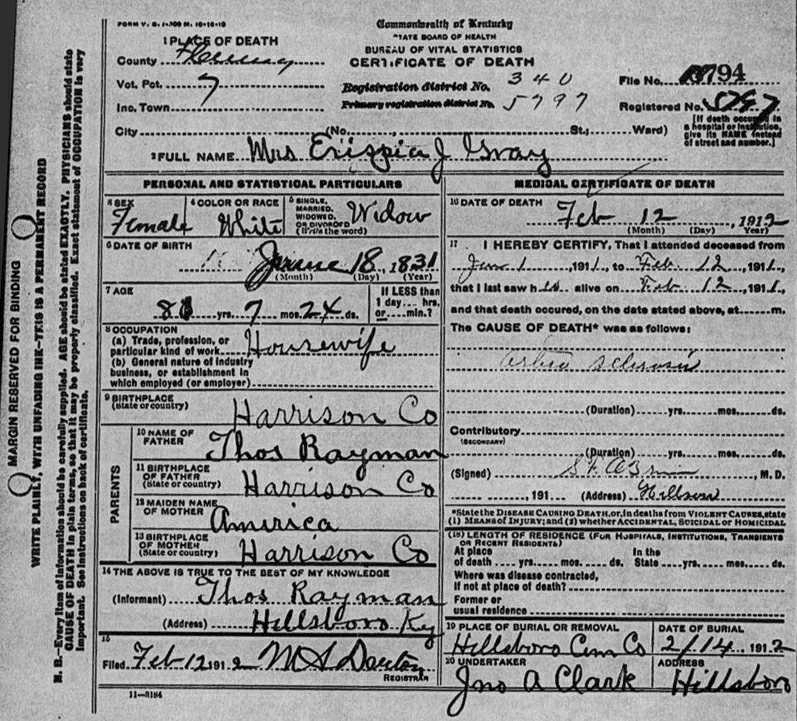 FORM V. S. 1-
Commonwealth of Kentucky
STATE BOARD OF HEALTH
BUREAU OF VITAL STATISTICS
CERTIFICATE OF DEATH
1 PLACE OF DEATH
County
Vot. Pct. 7
Inc. Town
Registration district No. 340
Primary registration district No. 5797
File No. 794
Registered No. 5797
[If death occurred in a hospital or institution, give its NAME instead of street and number.]
City (No. , St.; Ward)
2 FULL NAME Mrs J Gray
PERSONAL AND STATISTICAL PARTICULARS
3 SEX Female
4 COLOR OR RACE White
5 SINGLE, MARRIED, WIDOWED, OR DIVORCED (Write the word) Widow
6 DATE OF BIRTH 18, 1831
(Month) (Day) (Year)
7 AGE 8 yrs. 7 mos. 24 ds.
If LESS than 1 day ... hrs. or ... min.?
8 OCCUPATION
(a) Trade, profession, or particular kind of work Housewife
(b) General nature of industry business, or establishment in which employed (or employer)
9 BIRTHPLACE (State or country) Harrison Co
PARENTS
10 NAME OF FATHER Thos Rayman
11 BIRTHPLACE OF FATHER (State or country) Harrison Co
12 MAIDEN NAME OF MOTHER America
13 BIRTHPLACE OF MOTHER (State or country) Harrison Co
14 THE ABOVE IS TRUE TO THE BEST OF MY KNOWLEDGE
(Informant) Thos Rayman
(Address) Hillsboro Ky
15 Filed Feb 12 1912 M S
REGISTRAR
11-3184
MEDICAL CERTIFICATE OF DEATH
16 DATE OF DEATH Feb 12, 1912
(Month) (Day) (Year)
17 I HEREBY CERTIFY, That I attended deceased from
1, 1911, to Feb 12, 1911,
that I last saw h alive on Feb 12, 1911,
and that death occured, on the date stated above, at m.
The CAUSE OF DEATH* was as follows:
(Duration) yrs. mos. ds.
Contributory
(SECONDARY)
(Duration) yrs. mos. ds.
(Signed) M. D.
, 191 (Address)
*State the DISEASE CAUSING DEATH, or, in deaths from VIOLENT CAUSES, state (1) MEANS OF INJURY; and (2) whether ACCIDENTAL, SUICIDAL or HOMICIDAL
(18) LENGTH OF RESIDENCE (FOR HOSPITALS, INSTITUTIONS, TRANSIENTS OR RECENT RESIDENTS)
At place of death yrs. mos. ds. In the State yrs. mos. ds.
Where was disease contracted, If not at place of death?
Former or usual residence
19 PLACE OF BURIAL OR REMOVAL Hillsboro Cem Co
DATE OF BURIAL 2/14, 1912
20 UNDERTAKER Jno A Clark
ADDRESS Hillsboro
MARGIN RESERVED FOR BINDING
WRITE PLAINLY, WITH UNFADING INK—THIS IS A PERMANENT RECORD
N. B.—Every item of information should be carefully supplied. AGE should be stated EXACTLY. PHYSICIANS should state
CAUSE OF DEATH in plain terms, so that it may be properly classified. Exact statement of OCCUPATION is very
important. See instructions on back of certificate.